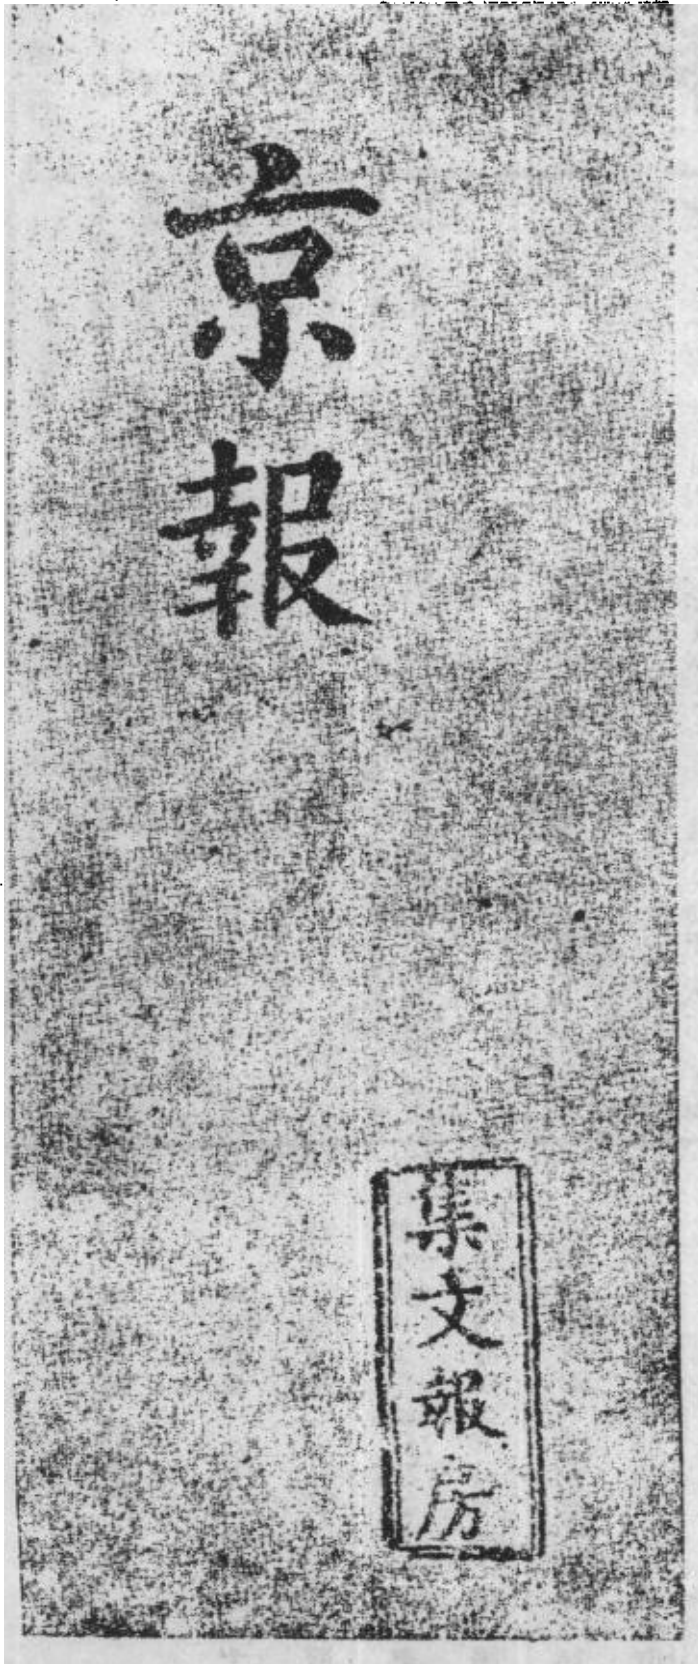 京報
集文報房